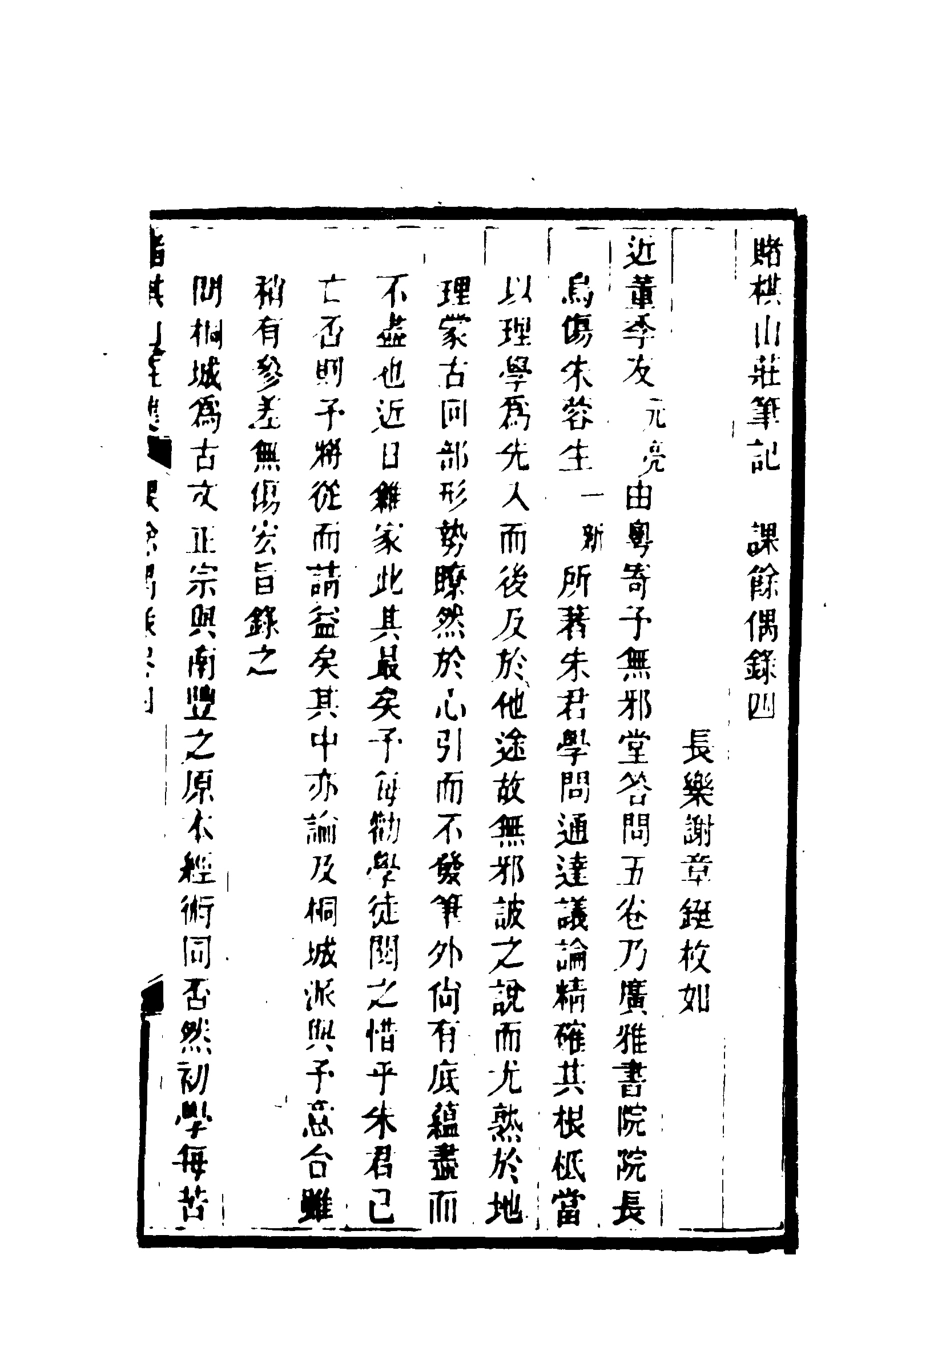 賭棋山莊筆記　課餘偶錄四
長樂謝章鋌枚如
近董季友元亮由粵寄予無邪堂答問五卷乃廣雅書院院長
烏傷朱蓉生一新所著朱君學問通達議論精確其根柢當
以理學爲先入而後及於他途故無邪詖之說而尤熟於地
理蒙古回部形勢瞭然於心引而不發筆外尙有底蘊盡而
不盡也近日雜家此其最矣予每勸學徒閱之惜乎朱君已
亡否則予將從而請益矣其中亦論及桐城派與予意合雖
稍有參差無傷宏旨錄之
問桐城爲古文正宗與南豐之原本經術同否然初學每苦